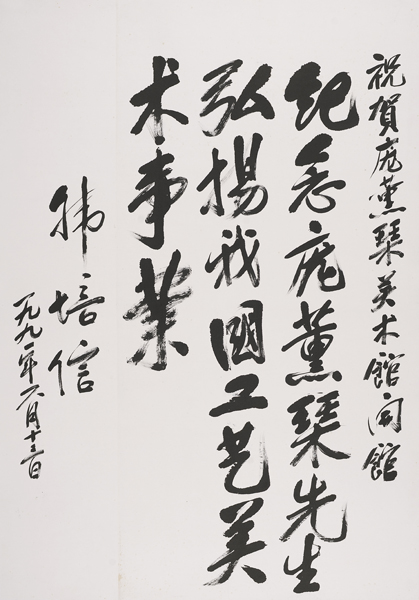 祝賀庞薰琹美术館開館
纪念庞薰琹先生
弘揚我國工艺美
术事業
韩培信
一九九一年六月十三日